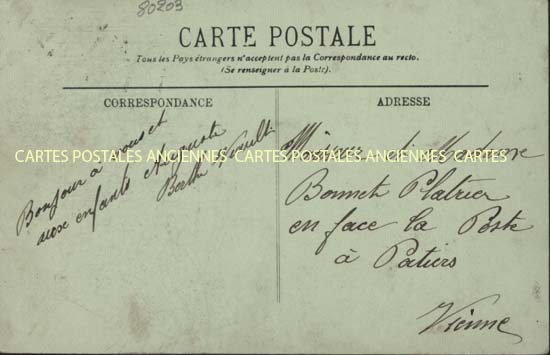 80203
CARTE POSTALE
Tous les Pays étrangers n'acceptent pas la Correspondance au recto.
(Se renseigner à la Poste)
CORRESPONDANCE
Bonjour a vous et
aux enfants
Berthe
ADRESSE
Monsieur et Madame
Bonnet Platrier
en face la Poste
à Patiers
Vienne
CARTES POSTALES ANCIENNES CARTES POSTALES ANCIENNES CARTES POSTALES ANCIENNES